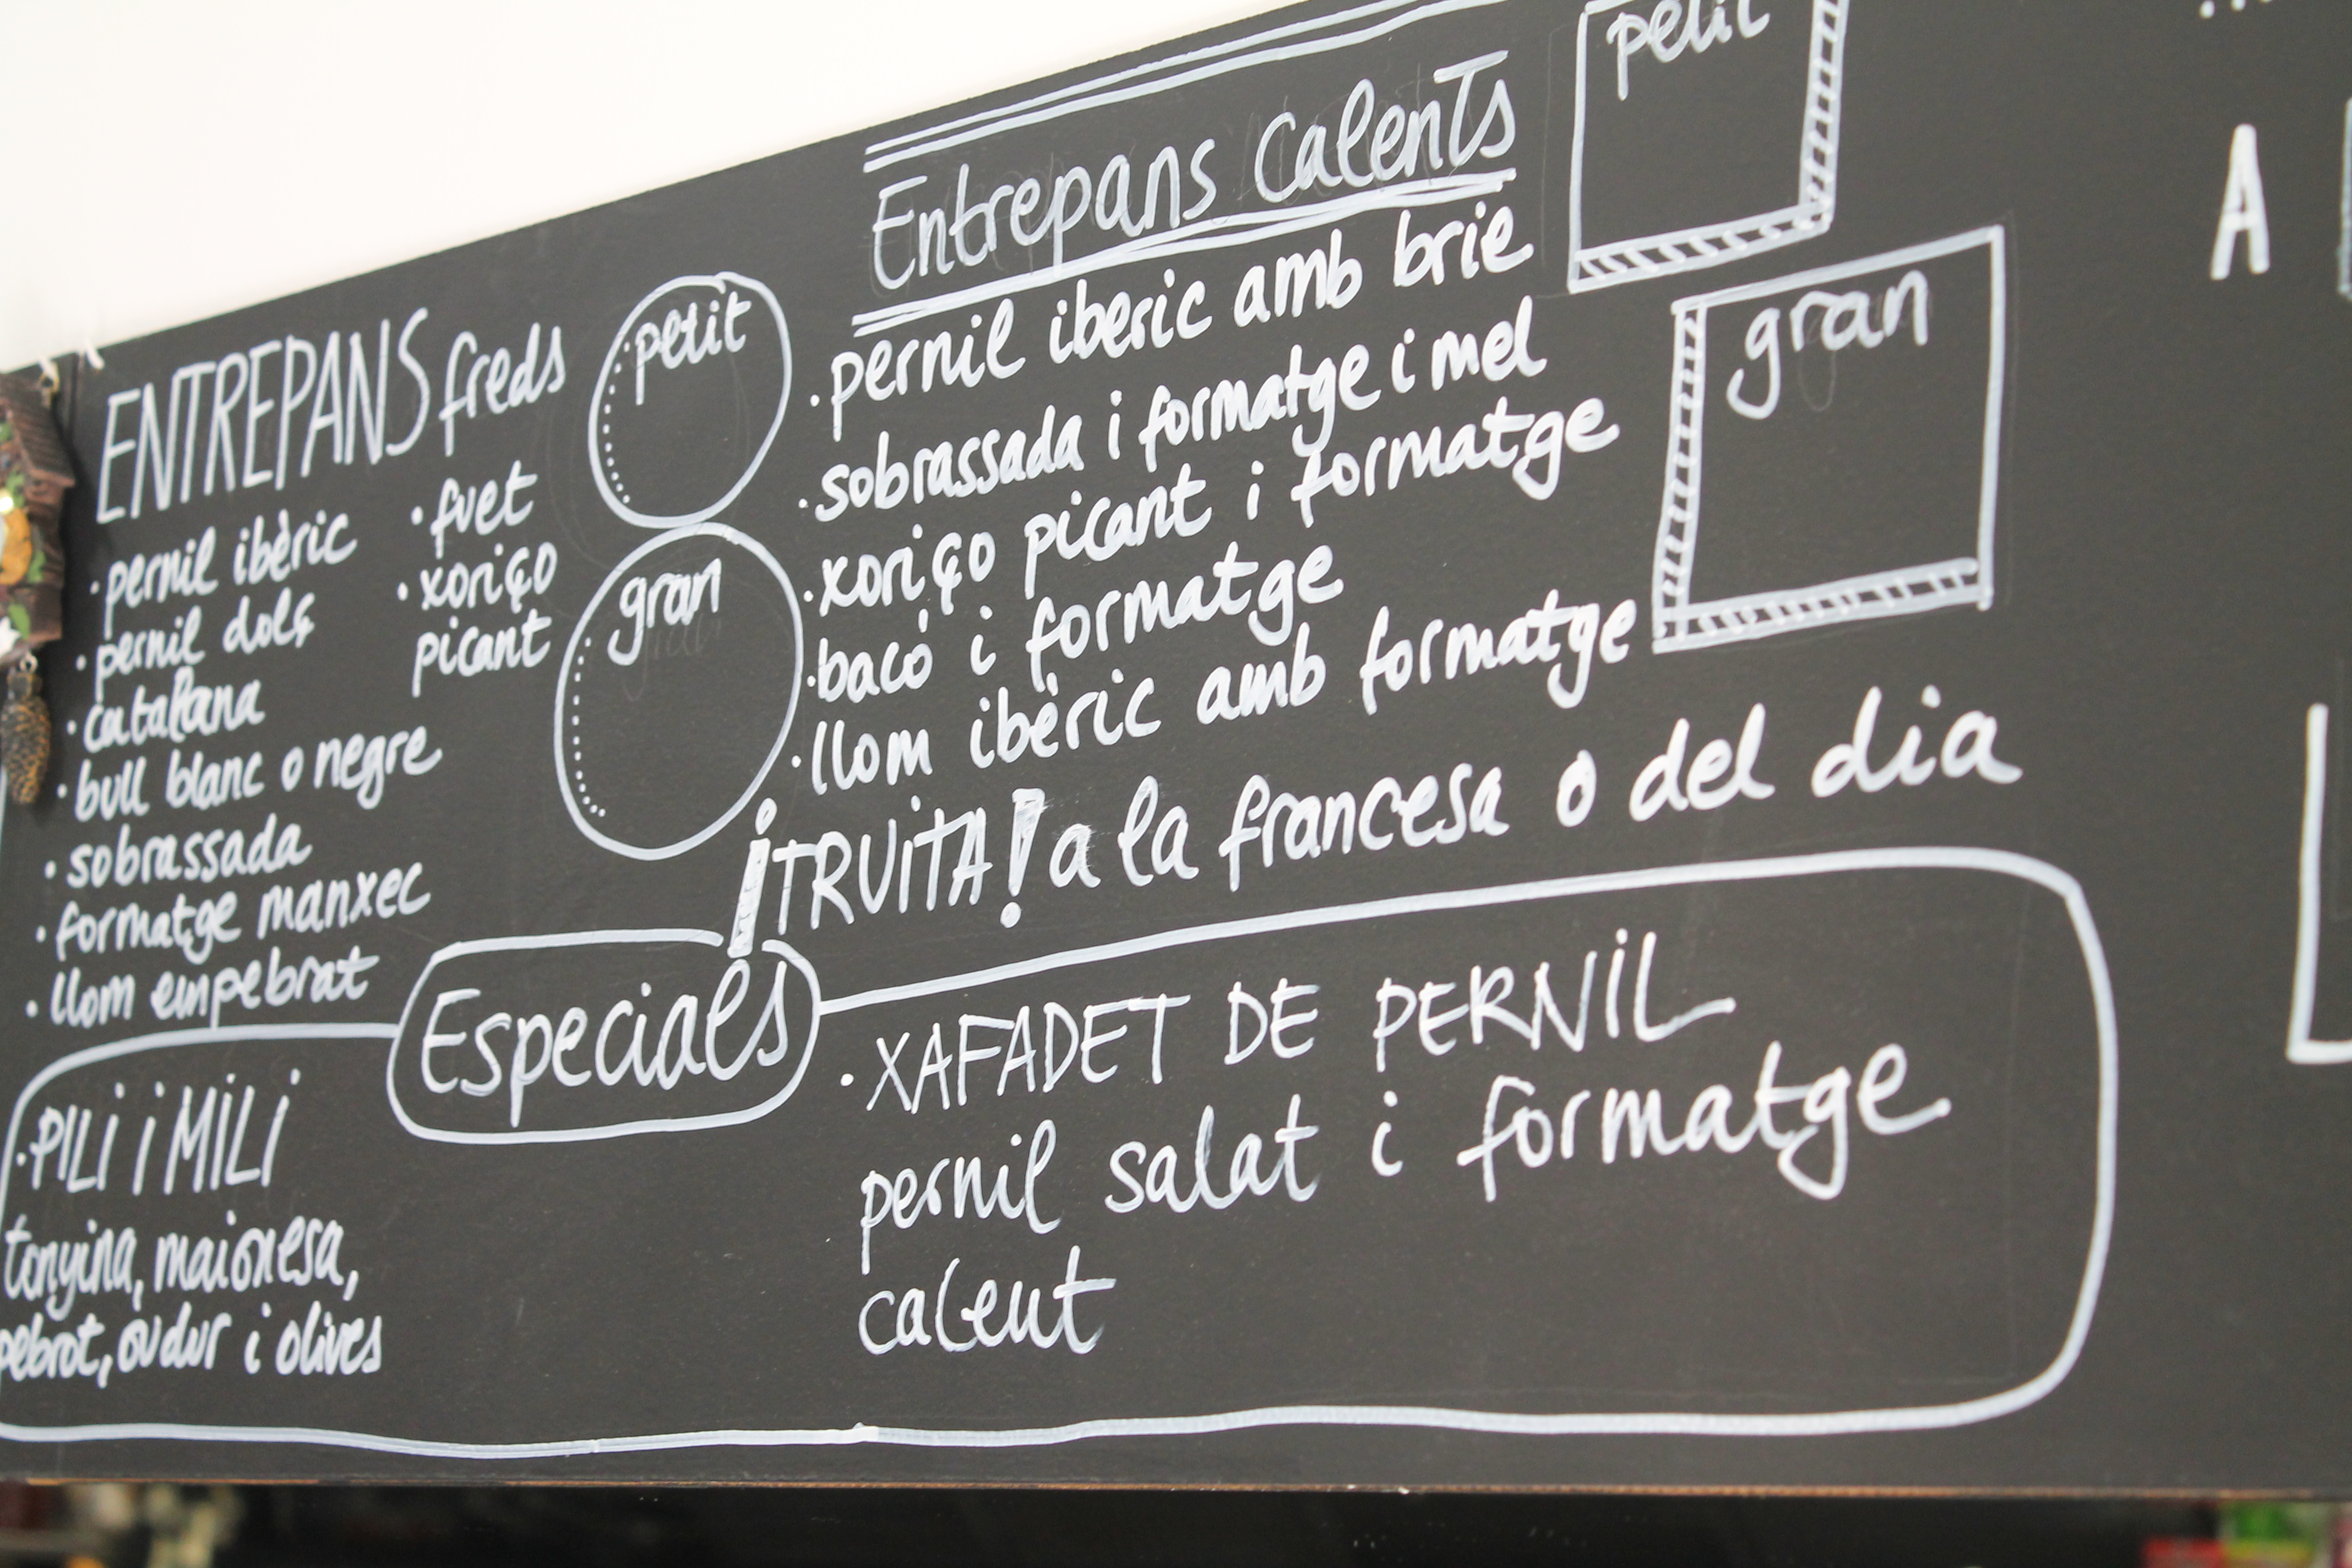 ENTREPANS freds
· pernil ibèric
· pernil dolç
· catalana
· bull blanc o negre
· sobrassada
· formatge manxec
· llom empebrat
· fuet
· xoriço
picant
petit
gran
Entrepans CalenTs
· pernil iberic amb brie
· sobrassada i formatge i mel
· xoriço picant i formatge
· bacó i formatge
· llom ibèric amb formatge
petit
gran
¡TRUiTA! a la francesa o del dia
Especials
· PiLi i MiLi
tonyina, maionesa,
pebrot, ou dur i olives
· XAFADET DE PERNiL
pernil salat i formatge
calent
A